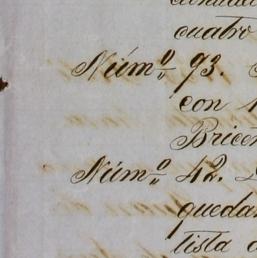 cuatro
Núm.º 93.
con
Brice
Núm.º 42.
quedan
tista